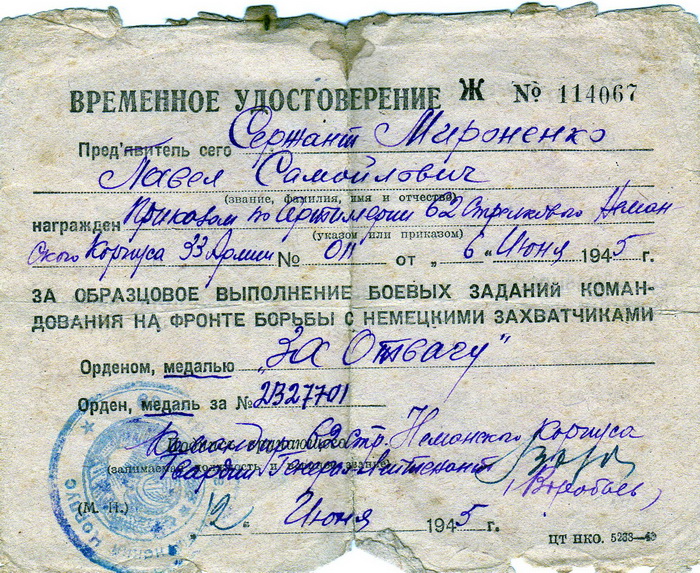 ВРЕМЕННОЕ УДОСТОВЕРЕНИЕ Ж № 114067
Пред'явитель сего Сержант Мироненко
Павел Самойлович
(звание, фамилия, имя и отчество)
награжден Приказом по Артилерии 62 Стрелкового Неман
(указом или приказом)
ского Корпуса 33 Армии № 011 от „ 6 " Июня 1945 г.
ЗА ОБРАЗЦОВОЕ ВЫПОЛНЕНИЕ БОЕВЫХ ЗАДАНИЙ КОМАН-
ДОВАНИЯ НА ФРОНТЕ БОРЬБЫ С НЕМЕЦКИМИ ЗАХВАТЧИКАМИ
Орденом, медалью „За Отвагу"
Орден, медаль за № 2327701
Командир 62 Стр. Неманского Корпуса
(занимаемая должность и
Гвардии Генерал-Лейтенант
(Воробьев)
(М. П.) „12" Июня 1945 г.
ЦТ НКО. 5233—49